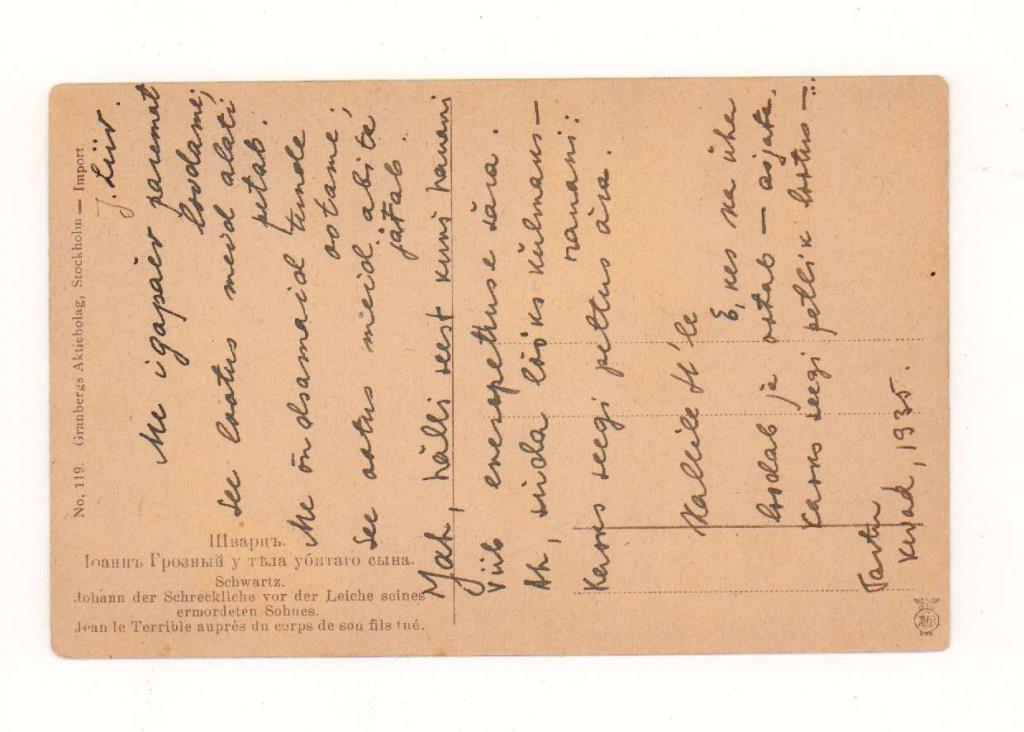 No. 119. Granbergs Aktiebolag, Stockholm — Import
Шварцъ.
Іоаннъ Грозный у тѣла убитаго сына.
Schwartz.
Johann der Schreckliche vor der Leiche seines
ermordeten Sohnes.
Jean le Terrible auprès du corps de son fils tué.
J. Liiv.
Me igapäev paremat
loodame;
See lootus meid alati
petab.
Me õndsamaid tunde
ootame;
See ootus meid abita
jätab.
Jah, hälli seest kuni hauani
Viib enesepetuse sära.
Ah, süda lööks külmaks-
rauani:
Kaoks seegi pettus ära.
Kallile H'le
E, kes ka ühe
loodab ja ootab — asjata.
Kaoks seegi petlik lootus —
Tartu
Kevad, 1935.